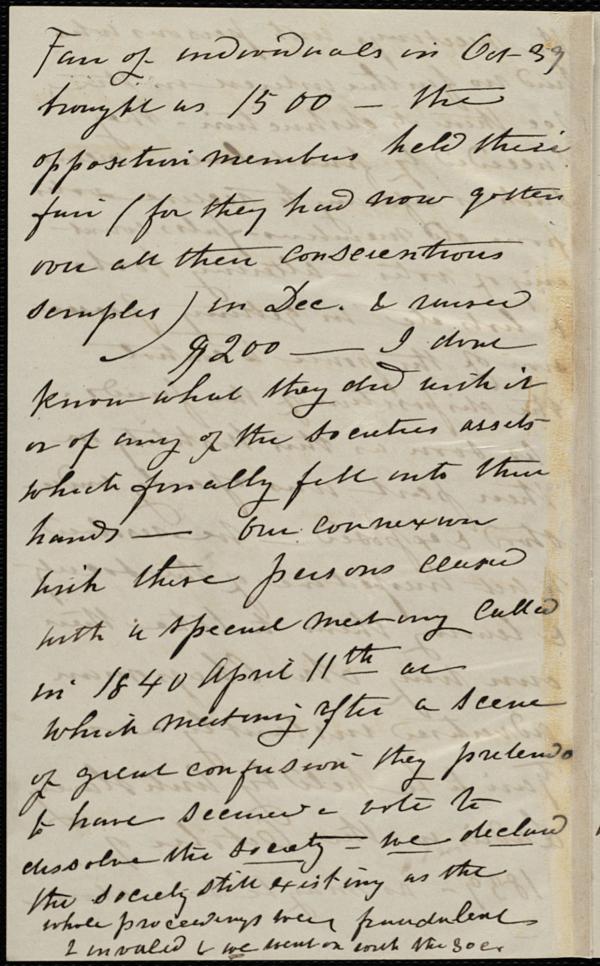 Fair of individuals in Oct 39
brought us 1500 — the
opposition members held their
fair (for they had now gotten
over all their conscientious
scruples) in Dec. & raised
$200 — I dont
know what they did with it
or of any of the societies assets
which finally fell into their
hands — Our connexion
with these persons ceased
with a special meeting called
in 1840 April 11th at
which meeting after a scene
of great confusion they pretend
to have secured a vote to
dissolve the society — we declared
the society still existing as the
whole proceedings were fraudulent
& invalid & we went on with the Soc.